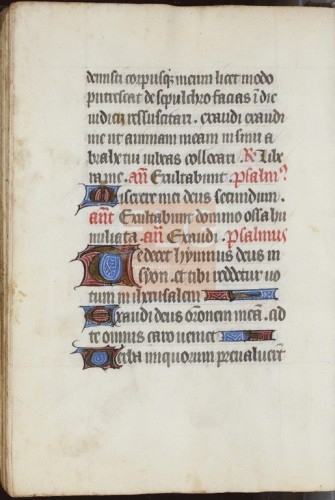 demisti corpusq; meum licet modo
putrescat de sepulchro facias ī die
iudicij ressuscitari. exaudi exaudi
me ut animam meam in sinu a
brahe tui iubeas collocari. R Libe
ra me. añ Exultabunt. psalm9
Miserere mei deus secundum.
añt Exultabunt domino ossa hu
miliata. añ Exaudi. psalmus
Te decet hymnus deus in
syon. et tibi reddetur uo
tum in iherusalem
Exaudi deus oronem meā. ad
te omnis caro ueniet
Verba iniquorum preualuerūt